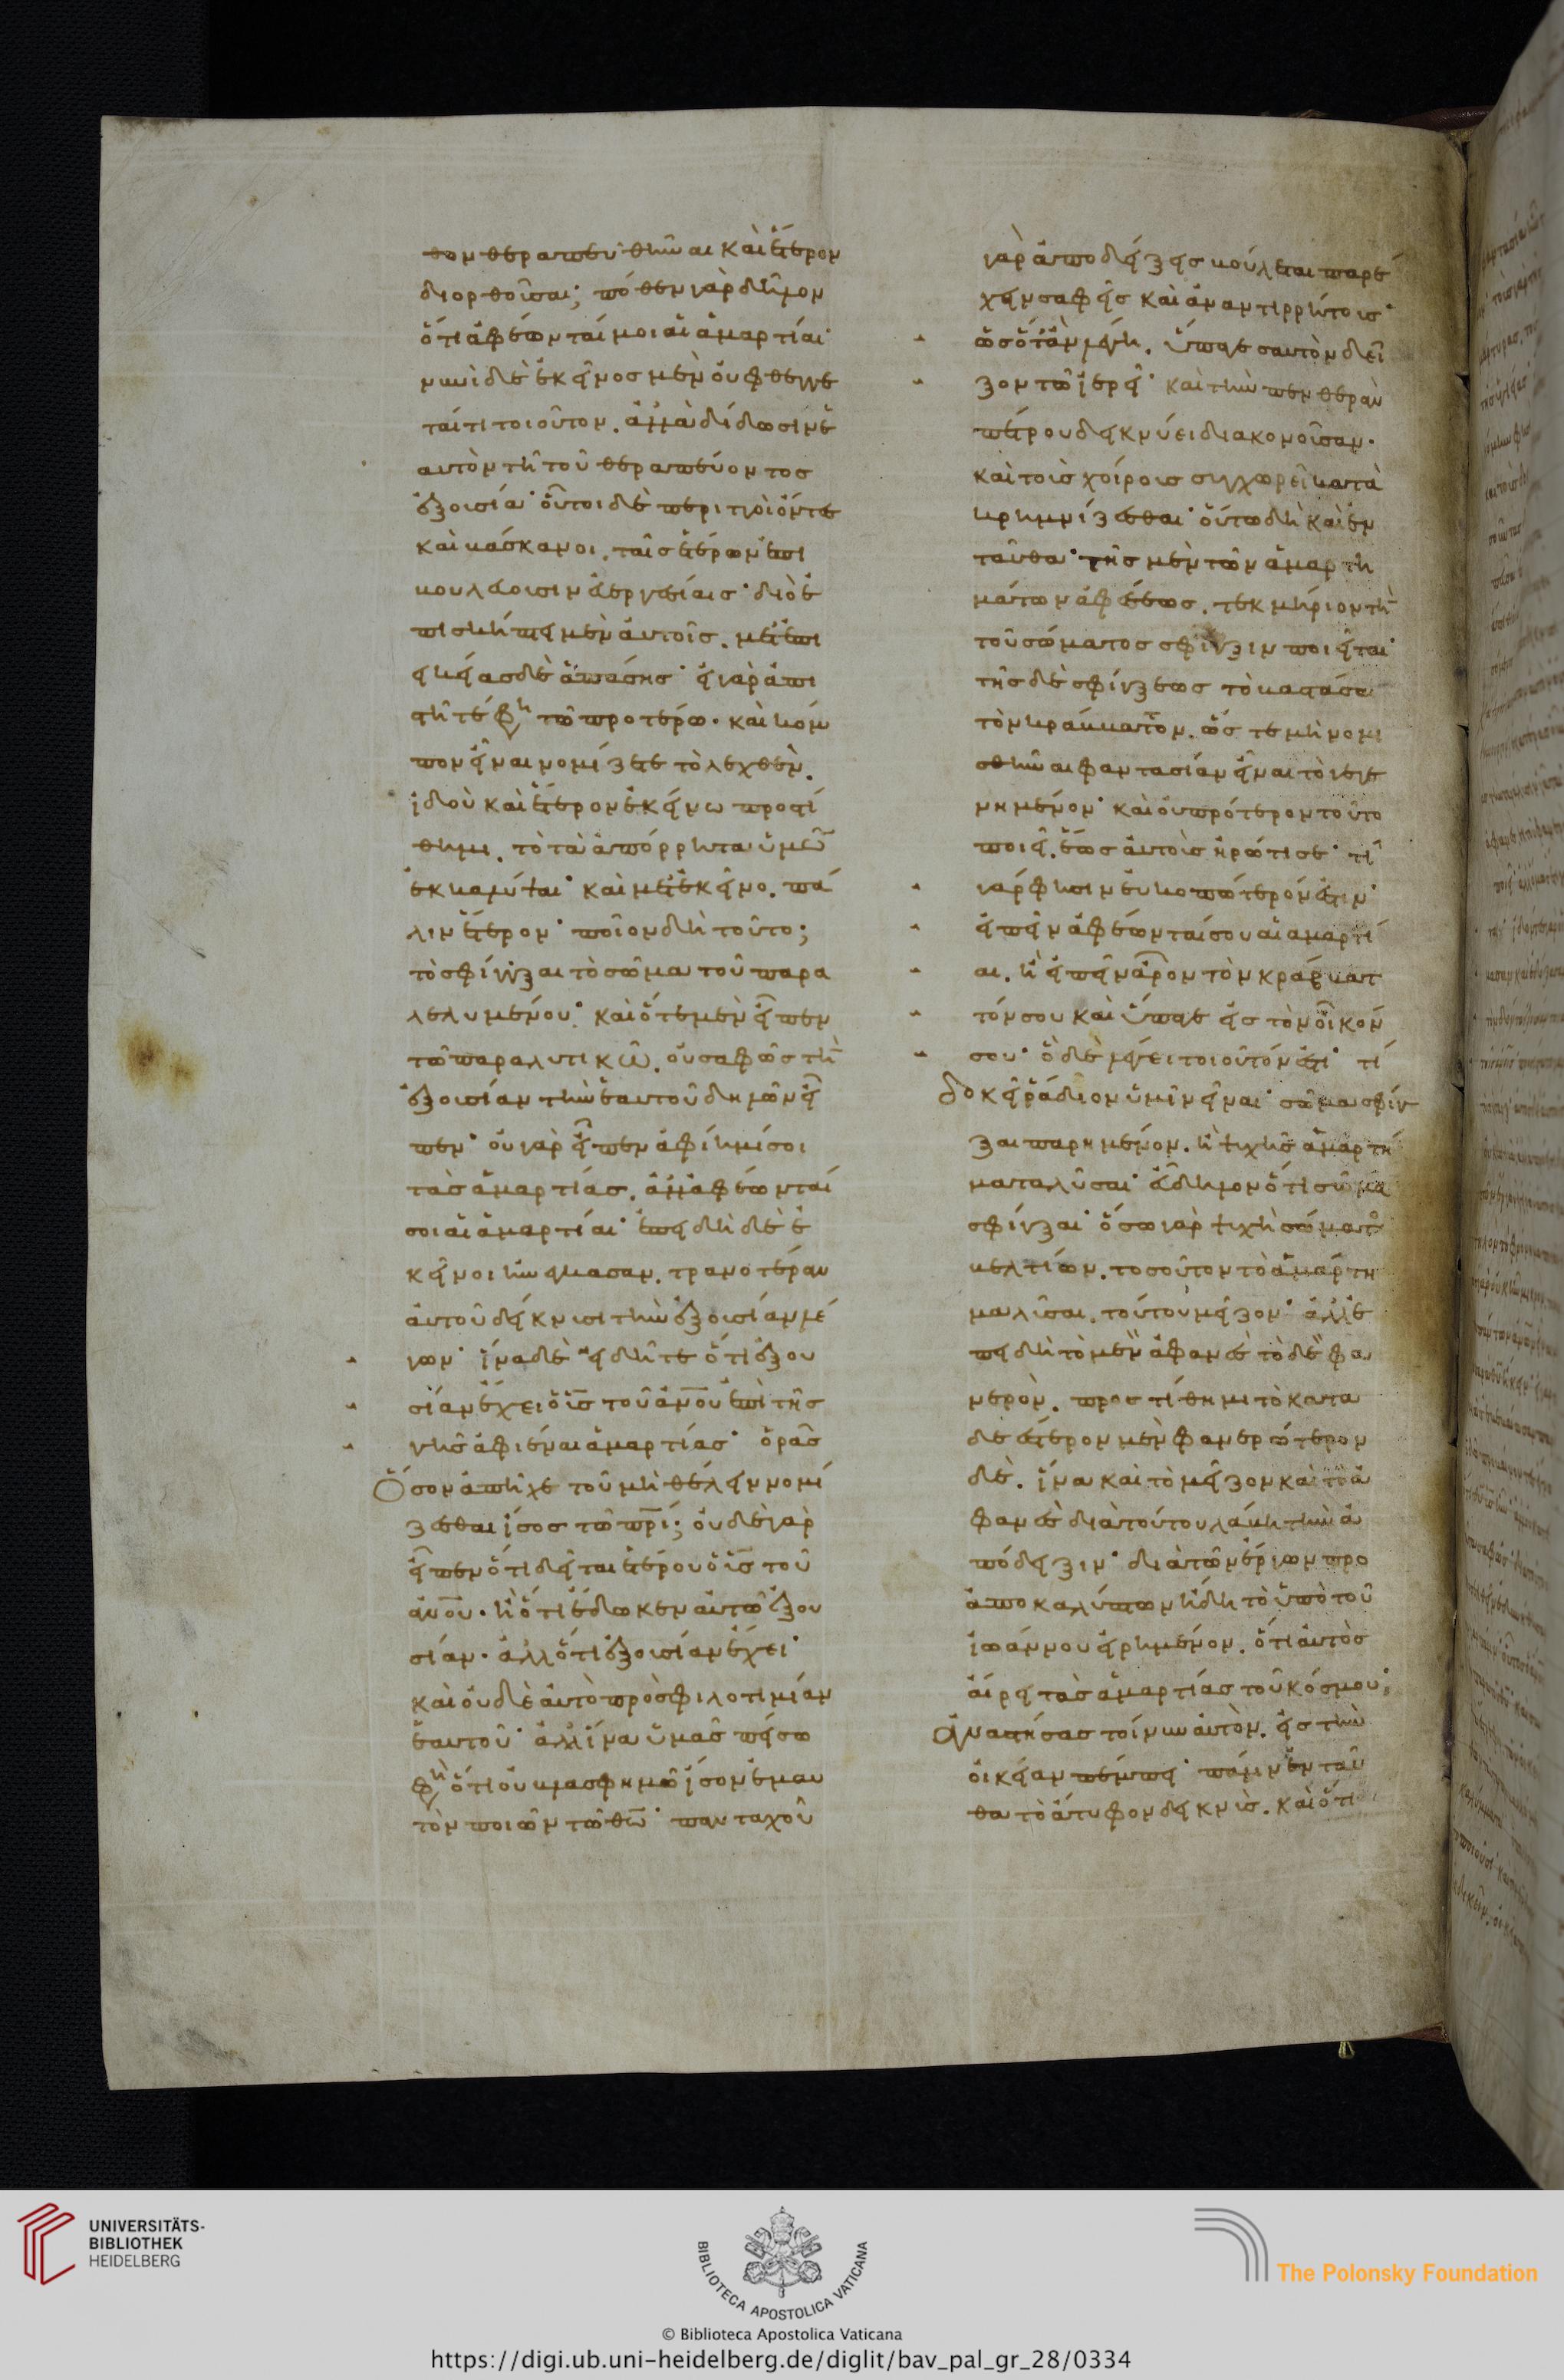 θον θεραπευθῆναι καὶ ἕτερον
διορθοῦσαι; πόθεν γὰρ δῆλον
ὅτι ἀφέωνταί μοι αἱ ἁμαρτίαι·
νυνὶ δὲ ἐκεῖνος μὲν οὐ φθέγγε
ταί τι τοιοῦτον. ἀλλὰ δίδωσιν ἑ
αυτὸν τῆ τοῦ θεραπεύοντος
ἐξουσία· οὗτοι δὲ περιττοὶ ὄντες
καὶ βάσκανοι. ταῖς ἑτέρων ἐπι
βουλεύουσιν εὐεργεσίαις· διὸ ἐ
πισκήπτει μὲν αὐτοῖς. μετ' ἐπι
εικείας δὲ ἁπάσης· εἰ γὰρ ἀπι
στῆτέ φη τῶ προτέρω. καὶ κόμ
πον εἶναι νομίζετε τὸ λεχθὲν.
ἰδοὺ καὶ ἕτερον ἐκείνω προστί
θημι. τὸ τὰ ἀπόρρητα ὑμῶν
ἐκκαλύψαι· καὶ μετ' ἐκεῖνο. πά
λιν ἕτερον· ποῖον δὴ τοῦτο;
τὸ σφίγξαι τὸ σῶμα τοῦ παρα
λελυμένου· καὶ ὅτε μὲν εἶπεν
τῶ παραλυτικῶ. οὐ σαφῶς τὴν
ἐξουσίαν τὴν ἑαυτοῦ δηλῶν εἶ
πεν· οὐ γὰρ εἶπεν ἀφίημί σοι
τὰς ἁμαρτίας. ἀλλ' ἀφέωνταί
σοι αἱ ἁμαρτίαι· ἐπειδὴ δὲ ἐ
κεῖνοι ἠνάγκασαν. τρανοτέραν
αὐτοῦ δείκνυσι τὴν ἐξουσίαν λέ
γων· ἵνα δὲ εἰδῆτε ὅτι ἐξου
σίαν ἔχει ὁ υἱς τοῦ ἀνου ἐπὶ τῆς
γῆς ἀφιέναι ἁμαρτίας· ὁρᾶς
ὅσον ἀπῆχε τοῦ μὴ θέλειν νομί
ζεσθαι ἴσος τῶ πρι; οὐδὲ γὰρ
εἶπεν ὅτι δεῖται ἑτέρου ὁ υἱς τοῦ
ἀνου. ἢ ὅτι ἔδωκεν αὐτῶ ἐξου
σίαν. ἀλλ' ὅτι ἐξουσίαν ἔχει·
καὶ οὐδὲ αὐτὸ πρὸς φιλοτιμίαν
ἑαυτοῦ· ἀλλ' ἵνα ὑμᾶς πείσω
φη ὅτι οὐ βλασφημῶ ἴσον ἐμαυ
τὸν ποιῶν τῶ θω· πανταχοῦ
γὰρ ἀποδείξεις βούλεται παρέ
χειν σαφεῖς καὶ ἀναντιρρήτους·
ὡς ὅταν λέγη. ὕπαγε σαυτὸν δεῖ
ξον τῶ ἱερεῖ· καὶ τὴν πενθερὰν
πέτρου δείκνύει διακονοῦσαν.
καὶ τοῖς χοίροις συγχωρεῖ κατα
κρημνίζεσθαι· οὕτω δὴ καὶ ἐν
ταῦθα· τῆς μὲν τῶν ἁμαρτη
μάτων ἀφέσεως. τεκμήριον τὴν
τοῦ σώματος σφίγξιν ποιεῖται·
τῆς δὲ σφίγξεως τὸ βαστάσαι
τὸν κράββατον. ὥστε μὴ νομι
σθῆναι φαντασίαν εἶναι τὸ γεγε
νημένον· καὶ οὐ πρότερον τοῦτο
ποιεῖ. ἕως αὐτοὺς ἠρώτησε· τί
γάρ φησιν εὐκοπώτερόν ἐστιν·
εἰπεῖν ἀφέωνταί σου αἱ ἁμαρτί
αι. ἢ εἰπεῖν ἆρον τὸν κράββατ
τόν σου καὶ ὕπαγε εἰς τὸν οἶκόν
σου· ὁ δὲ λέγει τοιοῦτόν ἐστι· τί
δοκεῖ ῥάδιον ὑμῖν εἶναι· σῶμα σφίγ
ξαι παρημένον. ἢ ψυχῆς ἁμαρτή
ματα λῦσαι· εὔδηλον ὅτι σῶμα
σφίγξαι· ὅσω γὰρ ψυχὴ σώματος
βελτίων. τοσοῦτον τὸ ἁμάρτη
μα λῦσαι. τούτου μεῖζον· ἀλλ' ἐ
πειδὴ τὸ μὲν ἀφανὲς τὸ δὲ φα
νερὸν. προστίθημι τὸ κατα
δεέστερον μὲν φανερώτερον
δὲ. ἵνα καὶ τὸ μεῖζον καὶ τὸ ἀ
φανὲς διὰ τούτου λάβη τὴν ἀ
πόδειξιν· διὰ τῶν ἔργων προ
αποκαλύπτων ἤδη τὸ ὑπὸ τοῦ
ἰωάννου εἰρημένον. ὅτι αὐτὸς
αἴρει τὰς ἁμαρτίας τοῦ κόσμου·
ἀναστήσας τοίνυν αὐτὸν. εἰς τὴν
οἰκείαν πέμπει· πάλιν ἐνταῦ
θα τὸ ἄτυφον δεικνὺς. καὶ ὅτι
UNIVERSITÄTS-
BIBLIOTHEK
HEIDELBERG
BIBLIOTECA APOSTOLICA VATICANA
The Polonsky Foundation
© Biblioteca Apostolica Vaticana
https://digi.ub.uni-heidelberg.de/diglit/bav_pal_gr_28/0334